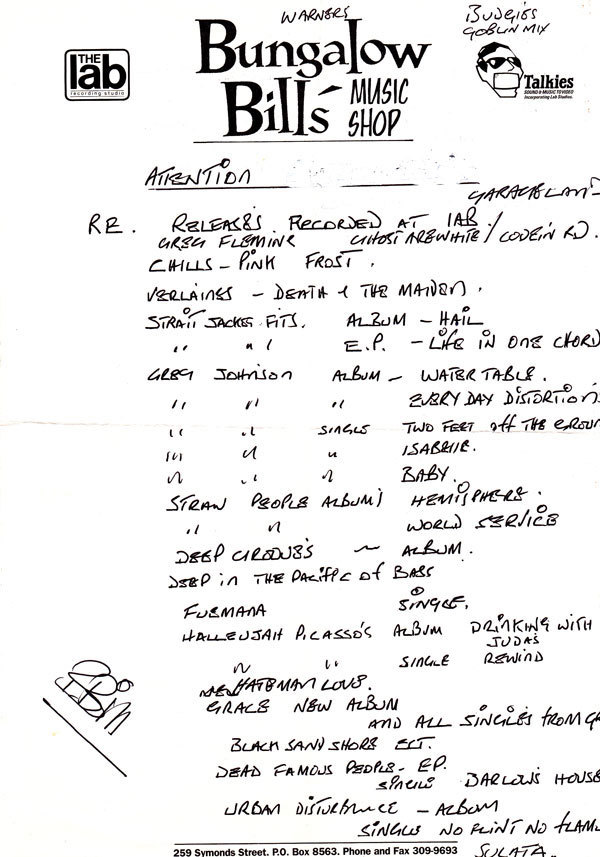 WARNERS
BUDGIES
GOBLIN MIX
THE
lab
recording studio
Bungalow
Bill's MUSIC
SHOP
Talkies
SOUND & MUSIC TO VIDEO
Incorporating Lab Studios.
ATTENTION
GARAGELAND
RE. RELEASES RECORDED AT LAB
GREG FLEMING GHOST ARE WHITE / CODEIN RD.
CHILLS - PINK FROST.
VERLAINES - DEATH & THE MAIDEN.
STRAIT JACKET FITS. ALBUM - HAIL
" " " E.P. - LIFE IN ONE CHORD
GREG JOHNSON ALBUM - WATERTABLE.
" " " EVERY DAY DISTORTION
" " SINGLE TWO FEET OFF THE GROUN
" " " ISABELLE.
" " " BABY.
STRAW PEOPLE ALBUM'S HEMISPHERE.
" " WORLD SERVICE
DEEP GROOVES ~ ALBUM.
DEEP IN THE PACIFIC OF BASS
FUEMANA SINGLE.
HALLELUJAH PICASSO'S ALBUM DRINKING WITH
JUDAS
" " SINGLE REWIND
HATEMAN LOVE.
GRACE NEW ALBUM
AND ALL SINGLES FROM G
BLACK SAND SHORE ECT.
DEAD FAMOUS PEOPLE - EP.
SINGLE BARLOWS HOUSE
URBAN DISTURBANCE - ALBUM
SINGLE NO FLINT NO FLAM
SULATA.
259 Symonds Street. P.O. Box 8563. Phone and Fax 309-9693